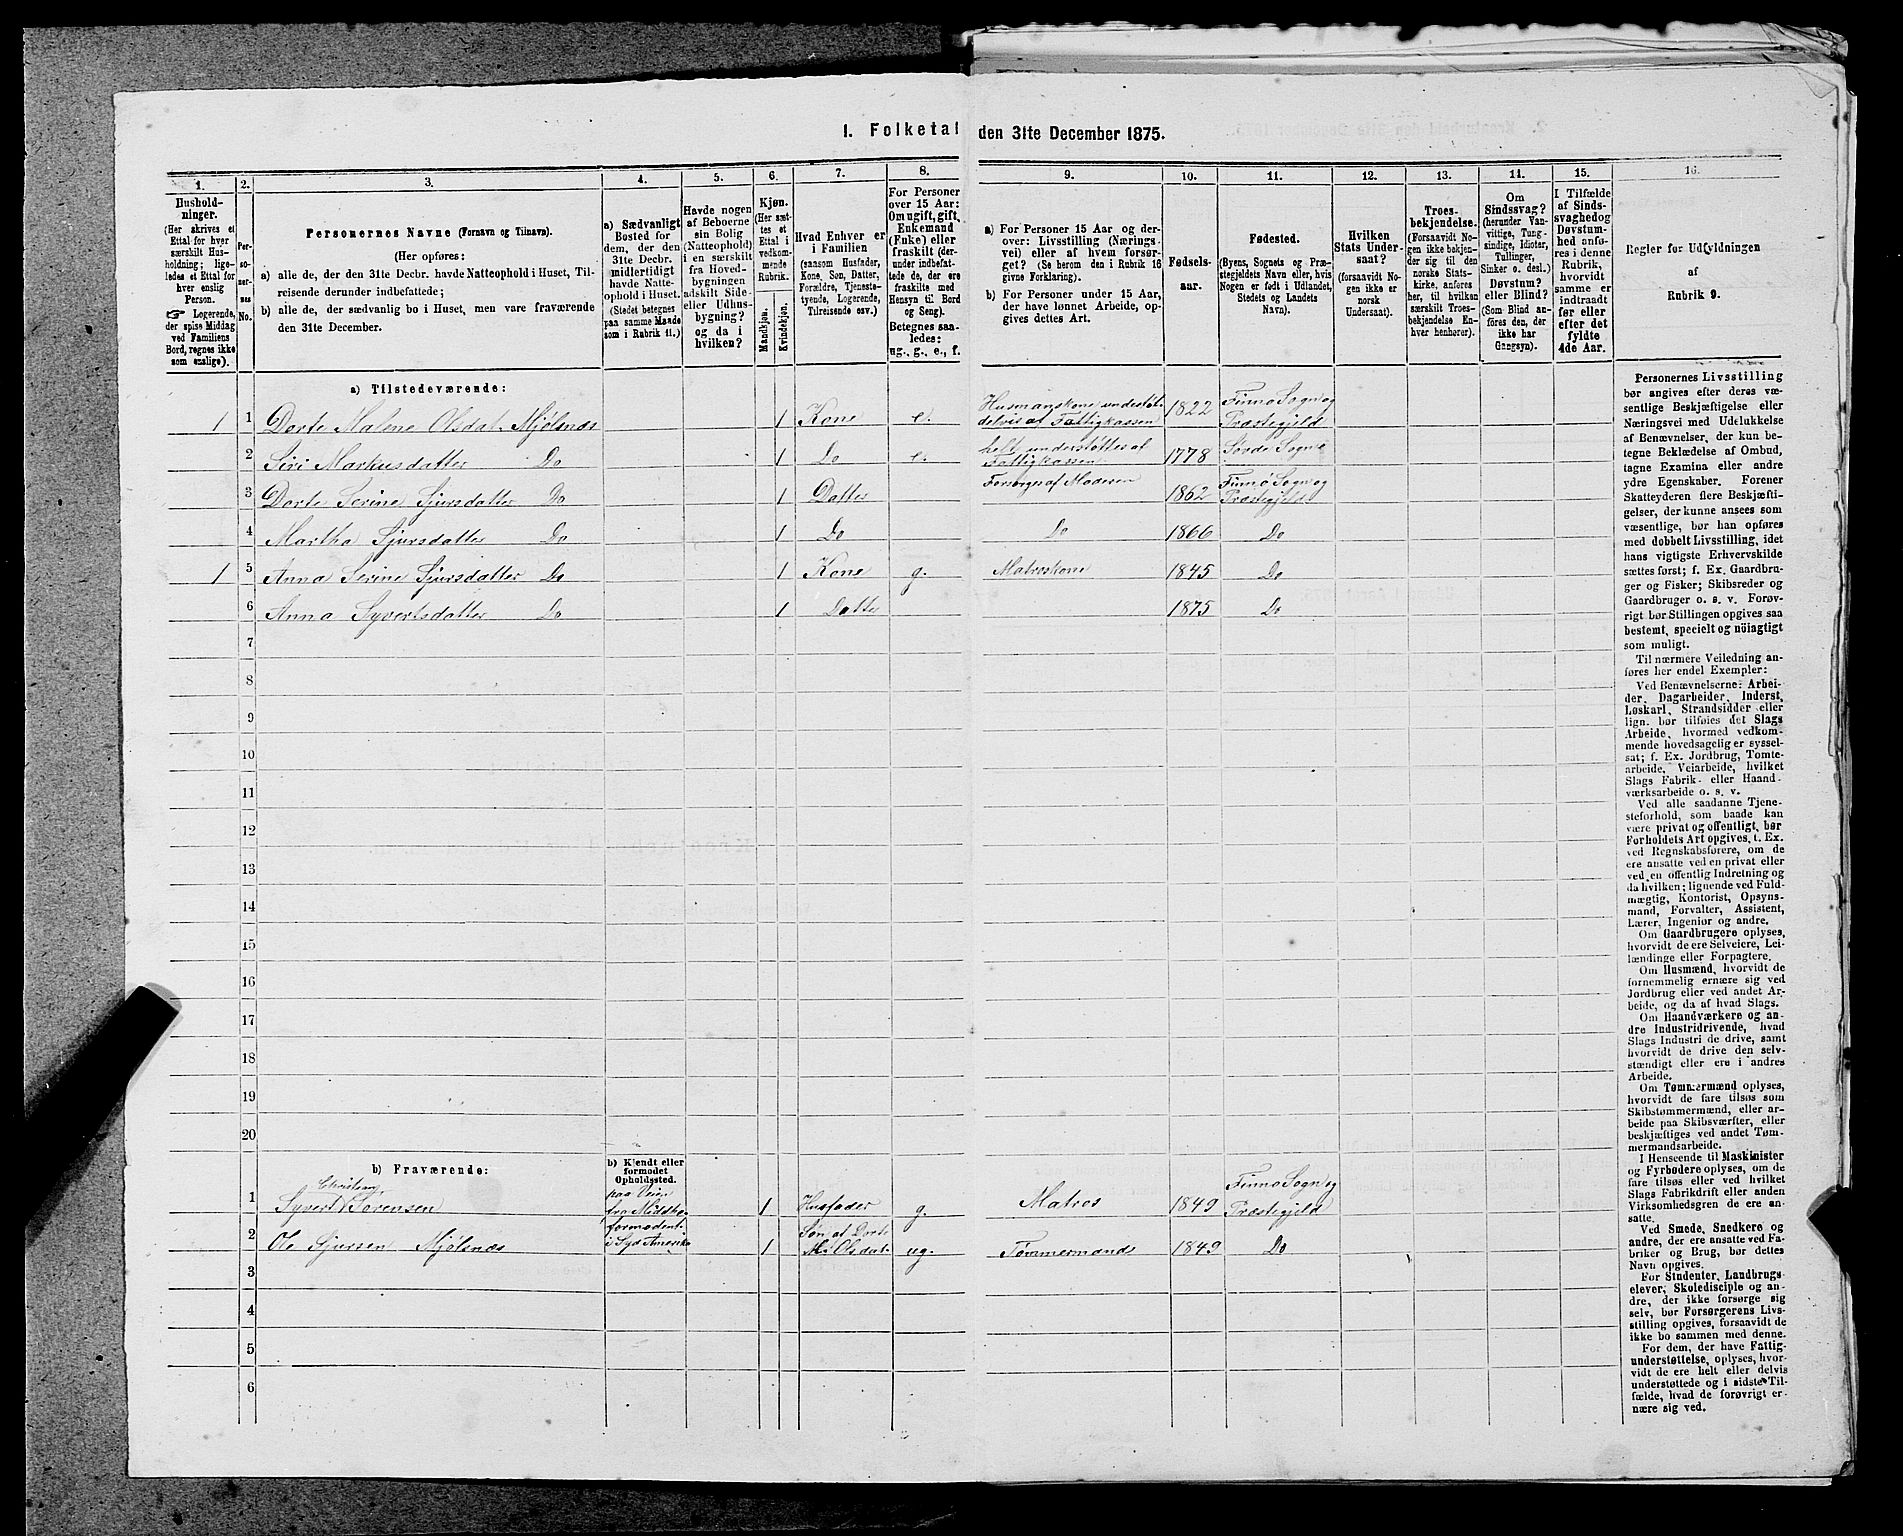 1. Folketal den 31te December 1875.
1.
Hushold-
ninger.
(Her skrives et
Ettal for hver
særskilt Hus-
holdning; lige-
ledes et Ettal for
hver enslig
Person.
☞ Logerende,
der spise Middag
ved Familiens
Bord, regnes ikke
som enslige).
2.
Per-
so-
ner-
nes
No.
3.
Personernes Navne (Fornavn og Tilnavn).
(Her opføres:
a) alle de, der den 31te Decbr. havde Natteophold i Huset, Til-
reisende derunder indbefattede;
b) alle de, der sædvanlig bo i Huset, men vare fraværende
den 31te December.
4.
a) Sædvanligt
Bosted for
dem, der den
31te Decbr.
midlertidigt
havde Natte-
ophold i Huset.
(Stedet betegnes
paa samme Maade
som i Rubrik 11.)
5.
Havde nogen
af Beboerne
sin Bolig
(Natteophold)
i en særskilt
fra Hoved-
bygningen
adskilt Side-
eller Udhus-
bygning?
og da i
hvilken?
6.
Kjøn.
(Her sæt-
tes et
Ettal i
vedkom-
mende
Rubrik.
Mandkjøn.
Kvindekjøn.
7.
Hvad Enhver er
i Familien
(saasom Husfader,
Kone, Søn, Datter,
Forældre, Tjeneste-
tyende, Logerende,
Tilreisende osv.)
8.
For Personer
over 15 Aar:
Om ugift, gift,
Enkemand
(Enke) eller
fraskilt (der-
under indbefat-
tede de, der ere
fraskilte med
Hensyn til Bord
og Seng).
Betegnes saa-
ledes:
ug., g., e., f.
9.
a) For Personer 15 Aar og der-
over: Livsstilling (Nærings-
vei) eller af hvem forsør-
get? (Se herom den i Rubrik 16
givne Forklaring).
b) For Personer under 15 Aar,
der have lønnet Arbeide, op-
gives dettes Art.
10.
Fødsels-
aar.
11.
Fødested.
(Byens, Sognets og Præ-
stegjeldets Navn eller, hvis
Nogen er født i Udlandet,
Stedets og Landets
Navn).
12.
Hvilken
Stats Under-
saat?
(forsaavidt No-
gen ikke er
norsk
Undersaat).
13.
Troes-
bekjendelse.
(Forsaavidt No-
gen ikke bekjen-
der sig til den
norske Stats-
kirke, anføres
her, til hvilken
særskilt Troes-
bekjendelse En-
hver henhører).
14.
Om
Sindssvag?
(herunder Van-
vittige, Tung-
sindige, Idioter,
Tullinger,
Sinker o. desl.)
Døvstum?
eller Blind?
(Som Blind an-
føres den, der
ikke har
Gangsyn).
15.
I Tilfælde
af Sinds-
svaghed og
Døvstum-
hed anfø-
res i denne
Rubrik,
hvorvidt
samme er
indtraadt
før eller
efter det
fyldte
4de Aar.
16.
Regler for Udfyldningen
af
Rubrik 9.
a) Tilstedeværende:
1 1 Dorte Malene Olsdat. Mjølsnæs 1 Kone e. Husmanskone understøt. delvis af Fattigkassen 1822 Finnø Sogn og Præstegjeld
2 Siri Markusdatter Do 1 Do e. helt understøttes af Fattigkassen 1778 Sövde Sogn
3 Dorte Serine Sjursdatter Do 1 Datter Forsørges af Moderen 1862 Finnø Sogn og Præstegjeld
4 Martha Sjursdatter Do 1 Do Do 1866 Do
1 5 Anna Serine Sjursdatter Do 1 Kone g. Matroskone 1845 Do
6 Anna Syvertsdatter Do 1 Datter 1875 Do
7
8
9
10
11
12
13
14
15
16
17
18
19
20
b) Fraværende:
b) Kjendt eller
formodet
Opholdssted.
1 Syvert Christian Sørensen paa Veien fra Middlbo. 1 Husfader g. Matros 1849 Finnø Sogn og Præstegjeld
2 Ole Sjursen Mjølsnæs formodentl. i Syd Amerika 1 Søn af Dorte M. Olsdat. ug. Tømmermand 1849 Do
3
4
5
6
Personernes Livsstilling
bør angives efter deres væ-
sentlige Beskjæftigelse eller
Næringsvei med Udelukkelse
af Benævnelser, der kun be-
tegne Beklædelse af Ombud,
tagne Examina eller andre
ydre Egenskaber. Forener
Skatteyderen flere Beskjæfti-
gelser, der kunne ansees som
væsentlige, bør han opføres
med dobbelt Livsstilling, idet
hans vigtigste Erhvervskilde
sættes først; f. Ex. Gaardbru-
ger og Fisker; Skibsreder og
Gaardbruger o. s. v. Forøv-
rigt bør Stillingen opgives saa
bestemt, specielt og nöiagtigt
som muligt.
Til nærmere Veiledning an-
føres her endel Exempler:
Ved Benævnelserne: Arbei-
der, Dagarbeider, Inderst,
Løskarl, Strandsidder eller
lign. bør tilføies det Slags
Arbeide, hvormed vedkom-
mende hovedsagelig er syssel-
sat; f. Ex. Jordbrug, Tomte-
arbeide, Veiarbeide, hvilket
Slags Fabrik- eller Haand-
værksarbeide o. s. v.
Ved alle saadanne Tjene-
steforhold, som baade kan
være privat og offentligt, bør
Forholdets Art opgives, t. Ex.
ved Regnskabsførere, om de
ere ansatte ved en privat eller
ved en offentlig Indretning og
da hvilken; lignende ved Fuld-
mægtig, Kontorist, Opsyns-
mand, Forvalter, Assistent,
Lærer, Ingeniør og andre.
Om Gaardbrugere oplyses,
hvorvidt de ere Selveiere, Lei-
lændinge eller Forpagtere.
Om Husmænd, hvorvidt de
fornemmelig ernære sig ved
Jordbrug eller ved andet Ar-
beide, og da af hvad Slags.
Om Haandværkere og an-
dre Industridrivende, hvad
Slags Industri de drive, samt
hvorvidt de drive den selv-
stændigt eller ere i andres
Arbeide.
Om Tømmermænd oplyses,
hvorvidt de fare tilsøs som
Skibstømmermænd, eller ar-
beide paa Skibsværfter, eller
beskjæftiges ved andet Tøm-
mermandsarbeide.
I Henseende til Maskinister
og Fyrbødere oplyses, om de
fare tilsøs eller ved hvilket
Slags Fabrikdrift eller anden
Virksomhedsgren de ere an-
satte.
Ved Smede, Snedkere og
andre, der ere ansatte ved Fa-
briker og Brug, bør dettes
Navn opgives.
For Studenter, Landbrugs-
elever, Skoledisciple og an-
dre, der ikke forsørge sig
selv, bør Forsørgerens Livs-
stilling opgives, forsaavidt de
ikke bo sammen med denne.
For dem, der have Fattig-
understøttelse, oplyses, hvor-
vidt de ere helt eller delvis
understøttede og i sidste Til-
fælde, hvad de forøvrigt er-
nære sig ved.